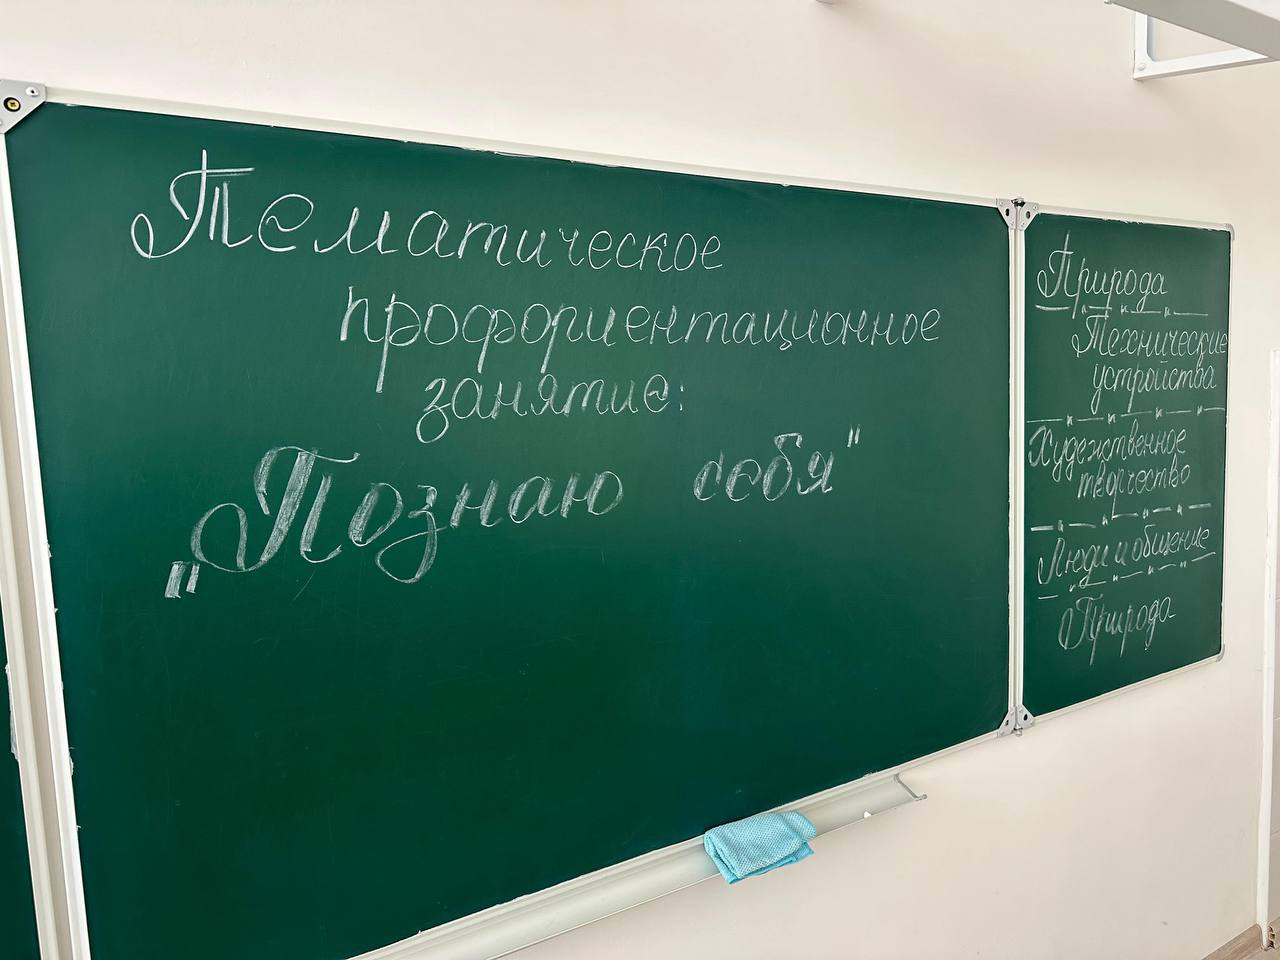 Тематическое
профориентационное
занятие:
„Познаю себя"
Природа
Технические
устройства
Художественное
творчество
Люди и общение
Природа